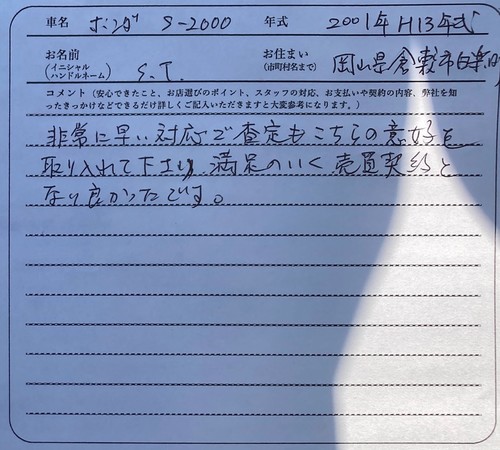 車名 ホンダ S-2000 年式 2001年 H13年式
お名前 お住まい
(イニシャル ハンドルネーム) S.T. (市町村名まで) 岡山県倉敷市白楽町
コメント(安心できたこと、お店選びのポイント、スタッフの対応、お支払いや契約の内容、弊社を知
ったきっかけなどできるだけ詳しくご記入いただきますと大変参考になります。)
非常に早い対応で査定もこちらの意好を
取り入れて下さり、満足のいく売買契約と
なり良かったです。